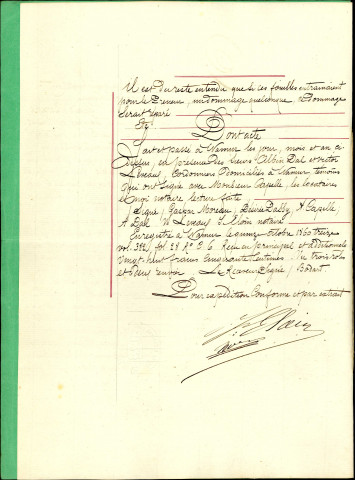 Il est du reste entendu que si ces fouilles entrainaient
pour le Preneur, un dommage quelconque, ce dommage
serait réparé
Dont acte
Fait et passé à Namur les jour, mois et an ci
dessus, en présence des sieurs Albin Dal et Victor
Leveau, Cordonnier Domiciliés à Namur témoins
qui ont signé avec Monsieur Capelle, les locataires
et moi notaire lecture faite
Signé / Gaspar Moreau, Désiré Dalby, A Capelle,
A Dal V Leveau, notaire
Enregistré à Namur le onze octobre 1860 treize
vol. 392 fol 28 Ro C 6 Reçu en principal et additionels
vingt huit francs cinquante centimes. Un trois rôles
et deux renvoi. Le Receveur Signé / Bodart
Pour expédition conforme et par extrait